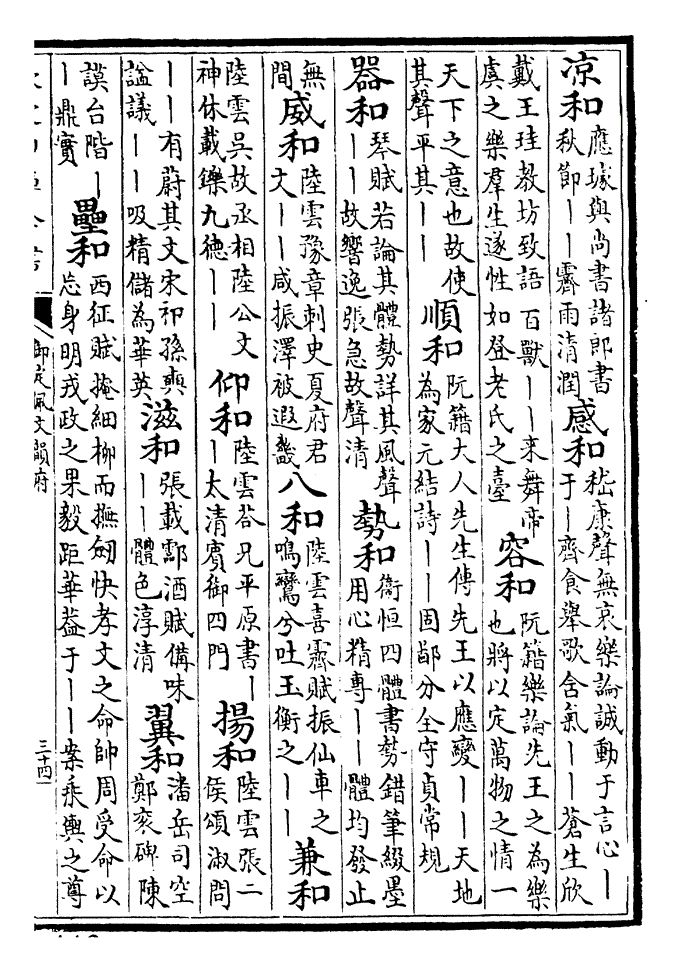 凉和應璩與尚書諸郎書秋節丨丨霽雨清潤感和嵇康聲無哀樂論誠動于言心丨于丨齊食舉歌含氣丨丨蒼生欣
戴王珪教坊致語百獸丨丨来舞帝虞之樂羣生遂性如登老氏之臺容和阮籍樂論先王之為樂也將以定萬物之情一
天下之意也故使其聲平其丨丨順和阮籍大人先生傳先王以應變丨丨天地為家元結詩丨丨固鄙分全守貞常規
器和琴賦若論其體勢詳其風聲丨丨故響逸張急故聲清勢和衞恒四體書勢錯筆綴墨用心精專丨丨體均發止
無間威和陸雲豫章刺史夏府君文丨丨咸振澤被遐畿八和陸雲喜霽賦振仙車之鳴鸞兮吐玉衡之丨丨兼和
陸雲吳故丞相陸公文神休載鑠九德丨丨仰和陸雲荅兄平原書丨丨太清賓御四門揚和陸雲張二侯頌淑問
丨丨有蔚其文宋祁孫奭謚議丨丨吸精儲為華英滋和張載酃酒賦備味丨丨體色淳清翼和潘岳司空鄭袤碑陳
謨台階丨丨鼎實壘和西征賦掩細柳而撫劔快孝文之命帥周受命以忘身明戎政之果毅距華葢于丨丨案乘輿之尊
御定佩文韻府
三十四